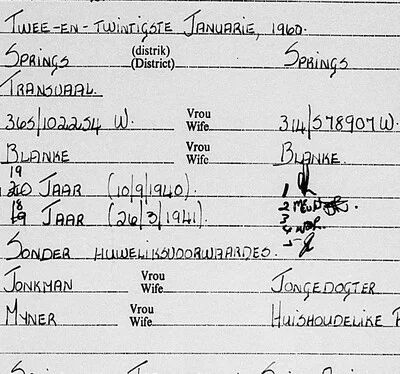 TWEE-EN-TWINTIGSTE JANUARIE, 1960.
SPRINGS (distrik) (District) SPRINGS
TRANSVAAL.
365/102254 W. Vrou Wife 314/578907 W.
BLANKE Vrou Wife BLANKE.
19
20 JAAR (10/9/1940). 1
18 2
19 JAAR (26/3/1941). 3
SONDER HUWELIKSVOORWAARDES. 4
JONKMAN Vrou Wife JONGEDOGTER
MYNER Vrou Wife HUISHOUDELIKE P